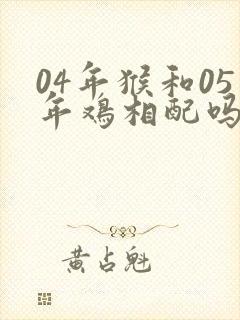 04年猴和05
年鸡相配吗
黄占魁